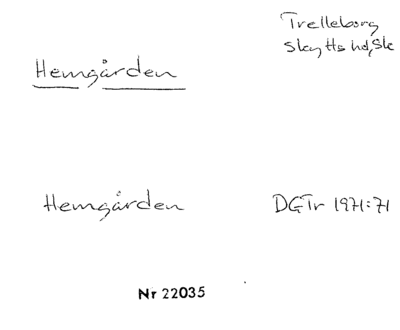 Trelleborg
Skytts hd, Sk
Hemgården
Hemgården DGTr 1971:71
Nr 22035